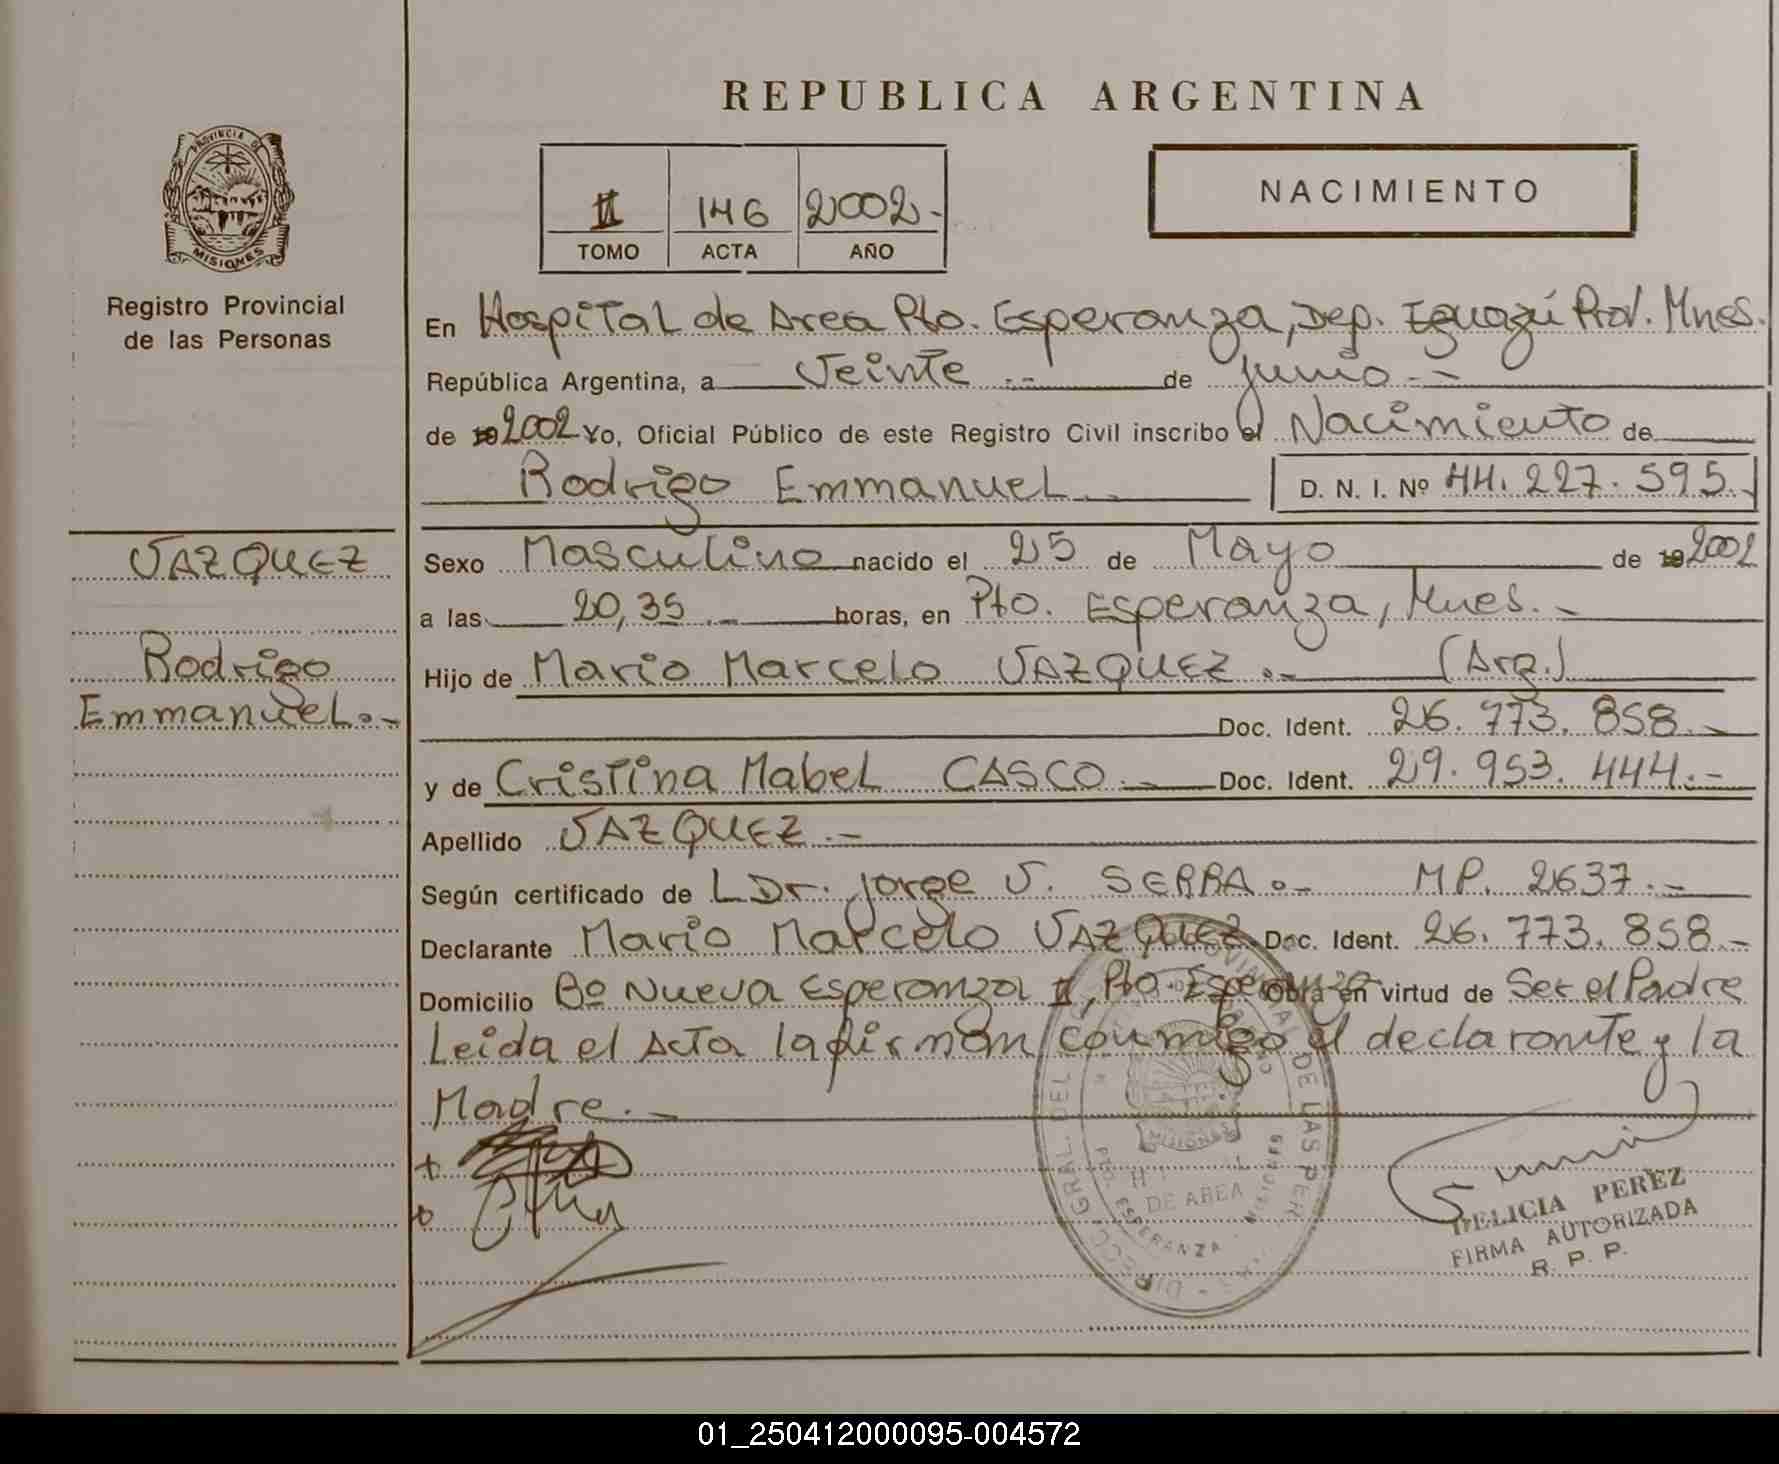 REPUBLICA ARGENTINA
PROVINCIA DE
MISIONES
Registro Provincial
de las Personas
II 146 2002.-
TOMO ACTA AÑO
NACIMIENTO
En Hospital de Area Pto. Esperanza, Dep. Iguazú Prov. Mnes.
República Argentina, a Veinte .- de junio.-
de 19 2002 Yo, Oficial Público de este Registro Civil inscribo el Nacimiento de
Rodrigo Emmanuel.- D. N. I. Nº 44.227.595.
VAZQUEZ
Rodrigo
Emmanuel.-
Sexo Masculino nacido el 25 de Mayo de 19 2002
a las 20,35.- horas, en Pto. Esperanza, Mnes.-
Hijo de Mario Marcelo VAZQUEZ.- (Arg.)
Doc. Ident. 26.773.858.-
y de Cristina Mabel CASCO.- Doc. Ident. 29.953.444.-
Apellido VAZQUEZ.-
Según certificado de L Dr. Jorge V. SERRA.- MP. 2637.-
Declarante Mario Marcelo VAZQUEZ Doc. Ident. 26.773.858.-
Domicilio Bº Nueva Esperanza II, Pto. Esperanza Obra en virtud de Ser el Padre
Leida el Acta la firman conmigo el declarante y la
Madre.-
GRAL. DEL
PROVINCIAL DE LAS PER
MISIONES
DE AREA
PTO. ESPERANZA - MISIONES
DIRECC.
DELICIA PEREZ
FIRMA AUTORIZADA
R. P. P.
01_250412000095-004572